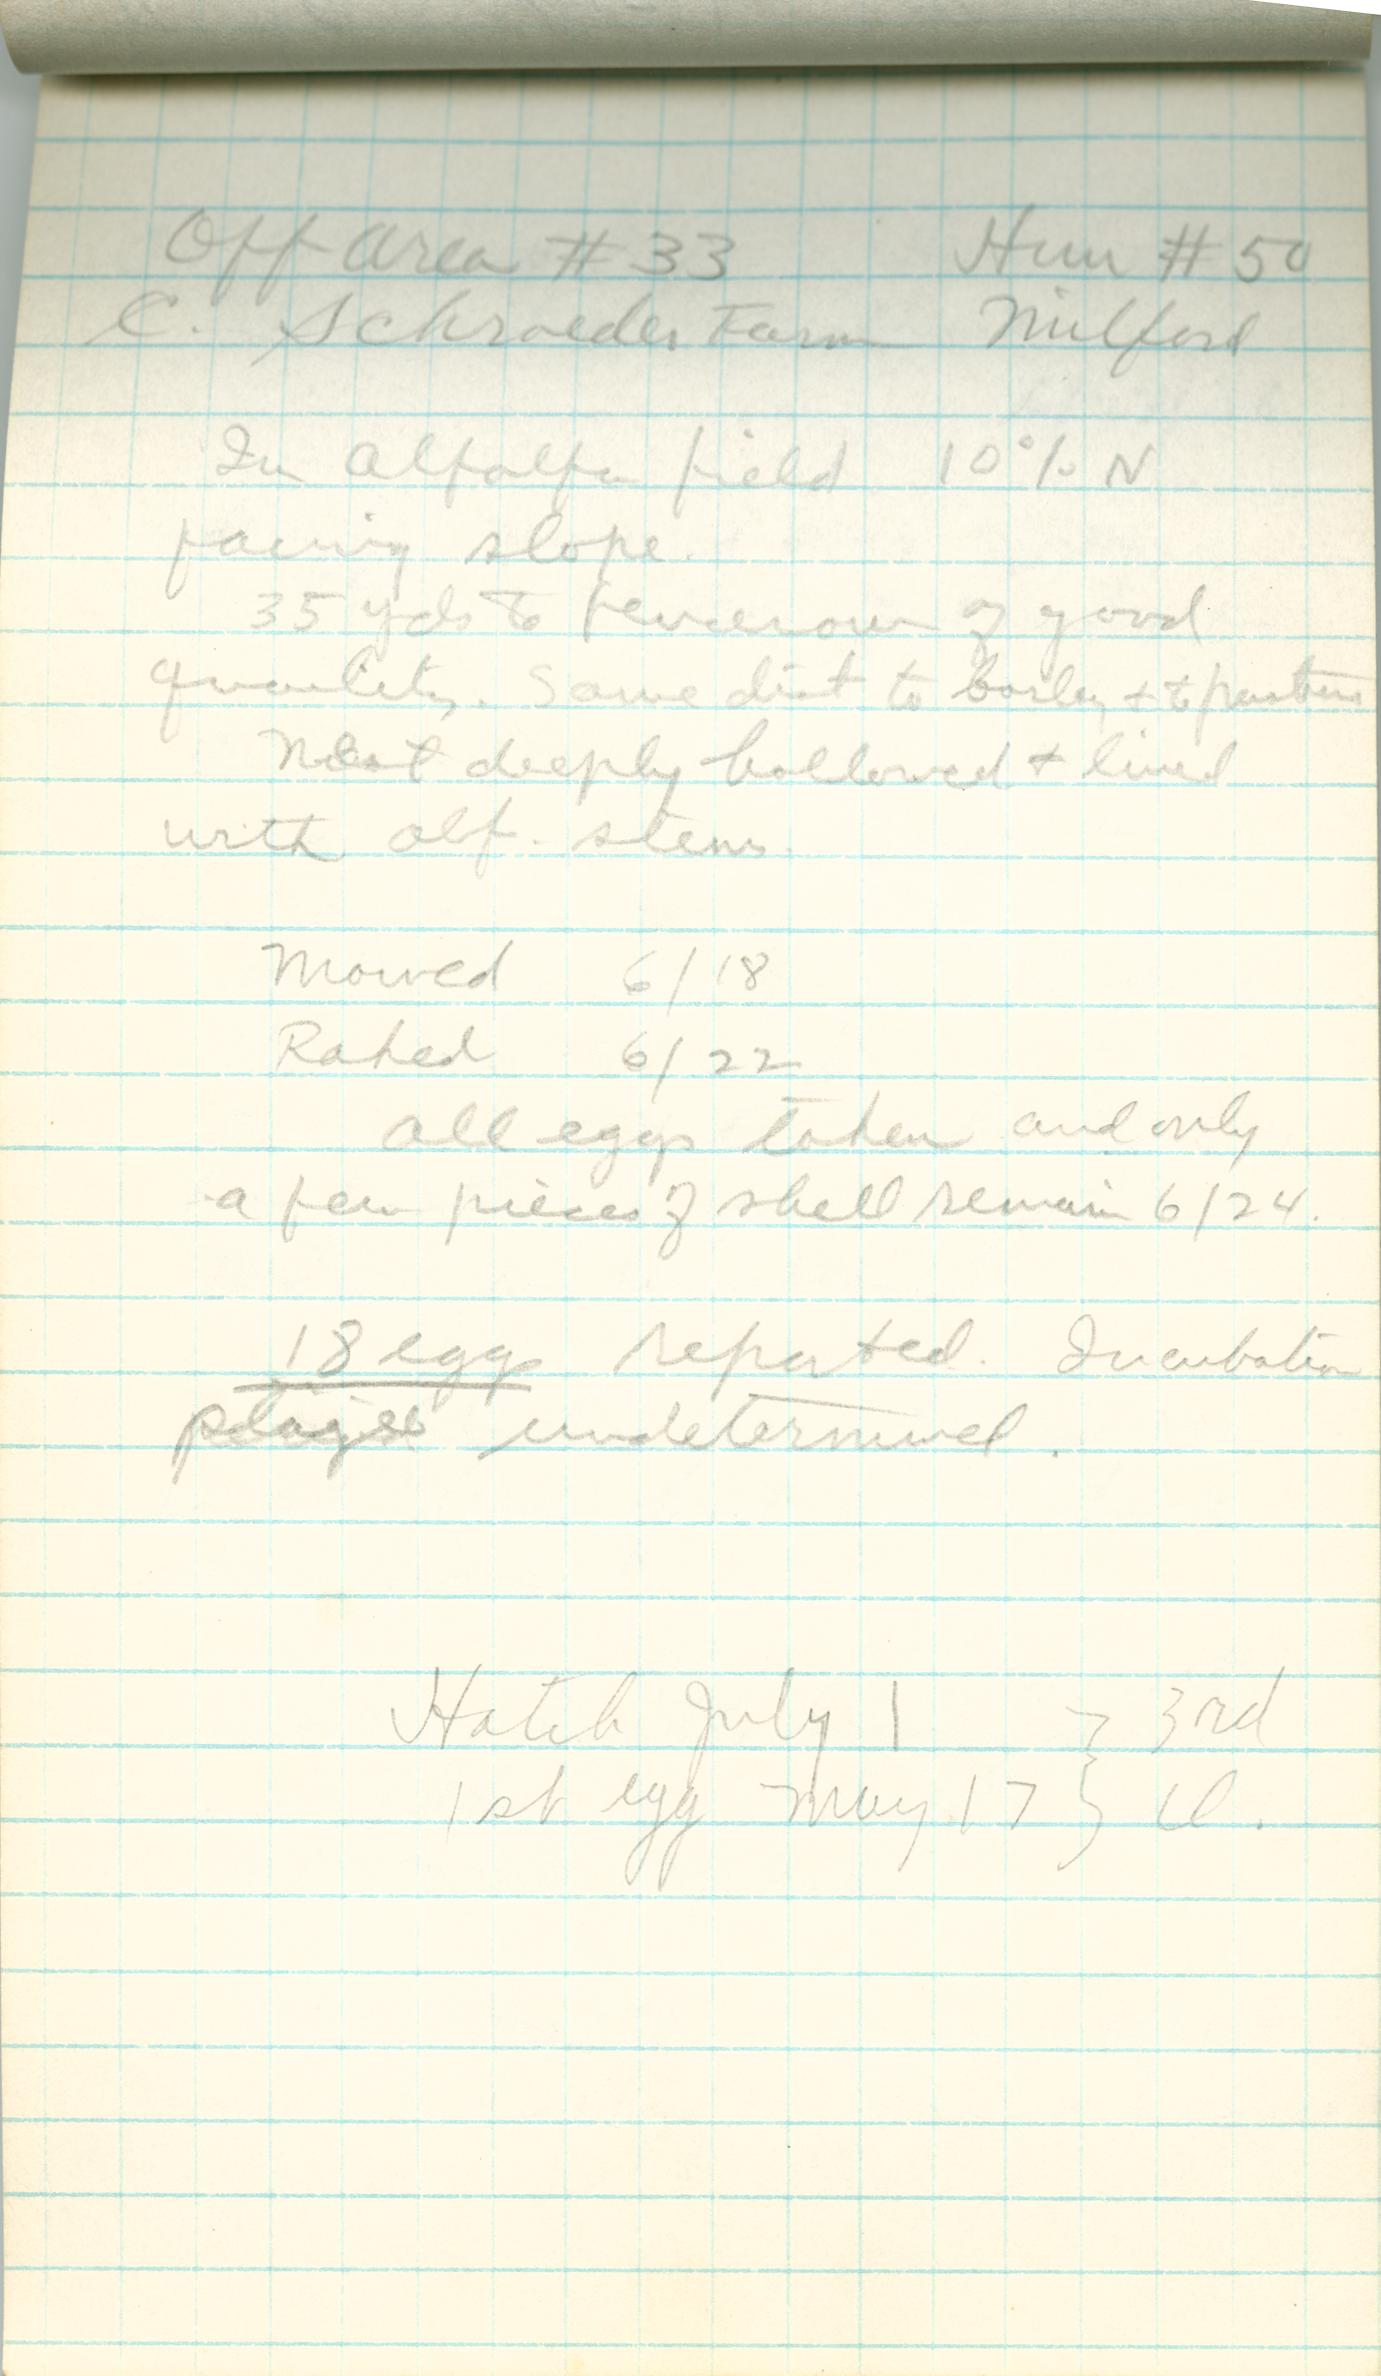 Off Area # 33 Hun # 50
C. Schroeder Farm Milford
In alfalfa field 10% N
facing slope.
35 yds to fencerow of good
quality. Same dist to barley + to pasture
Nest deeply hollowed + lined
with alf. stems.
Mowed 6/18
Raked 6/22
all eggs taken and only
a few pieces of shell remain 6/24.
18 eggs reported. Incubation
undetermined.
Hatch July 1 } 3rd
1st egg May 17 } Cl.